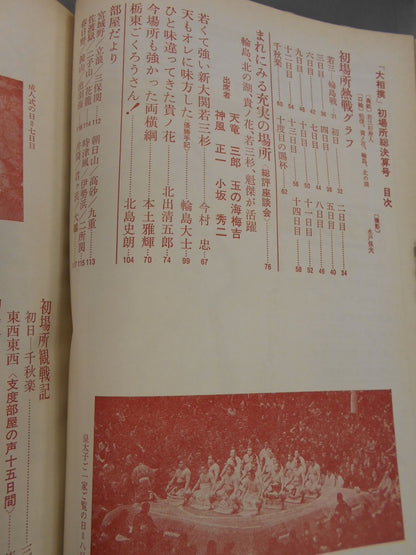 「大相撲」初場所総決算号 目次
初場所熱戦グラフ
若三―輪島戦
初日
二日目 34
四日目
五日目
六日目
七日目
八日目
九日目
十日目
十二日目
十三日目
十四日目
千秋楽
十度目の賜杯 62
まれにみる充実の場所 〈総評座談会〉 76
輪島、北の湖、貴ノ花、若三杉、魁傑が活躍
出席者
天竜三郎 玉の海梅吉
神風正一 小坂秀二
若くて強い新大関若三杉 今村忠 67
天もオレに味方した〈優勝手記〉 輪島大士 99
ひと味違ってきた貴ノ花 北出清五郎 74
今場所も強かった両横綱 本土雅輝 70
栃東ごくろうさん! 北島史朗 104
部屋だより
宮城野／立浪／三保関
朝日山／高砂／九重
佐渡嶽／二子山／花籠
時津風／伊勢ヶ浜／二所関
初場所観戦記
初日―千秋楽
東西東西〈支度部屋の声十五日間〉
成人式の日＝七日目
皇太子ご一家ご覧の日＝八日目